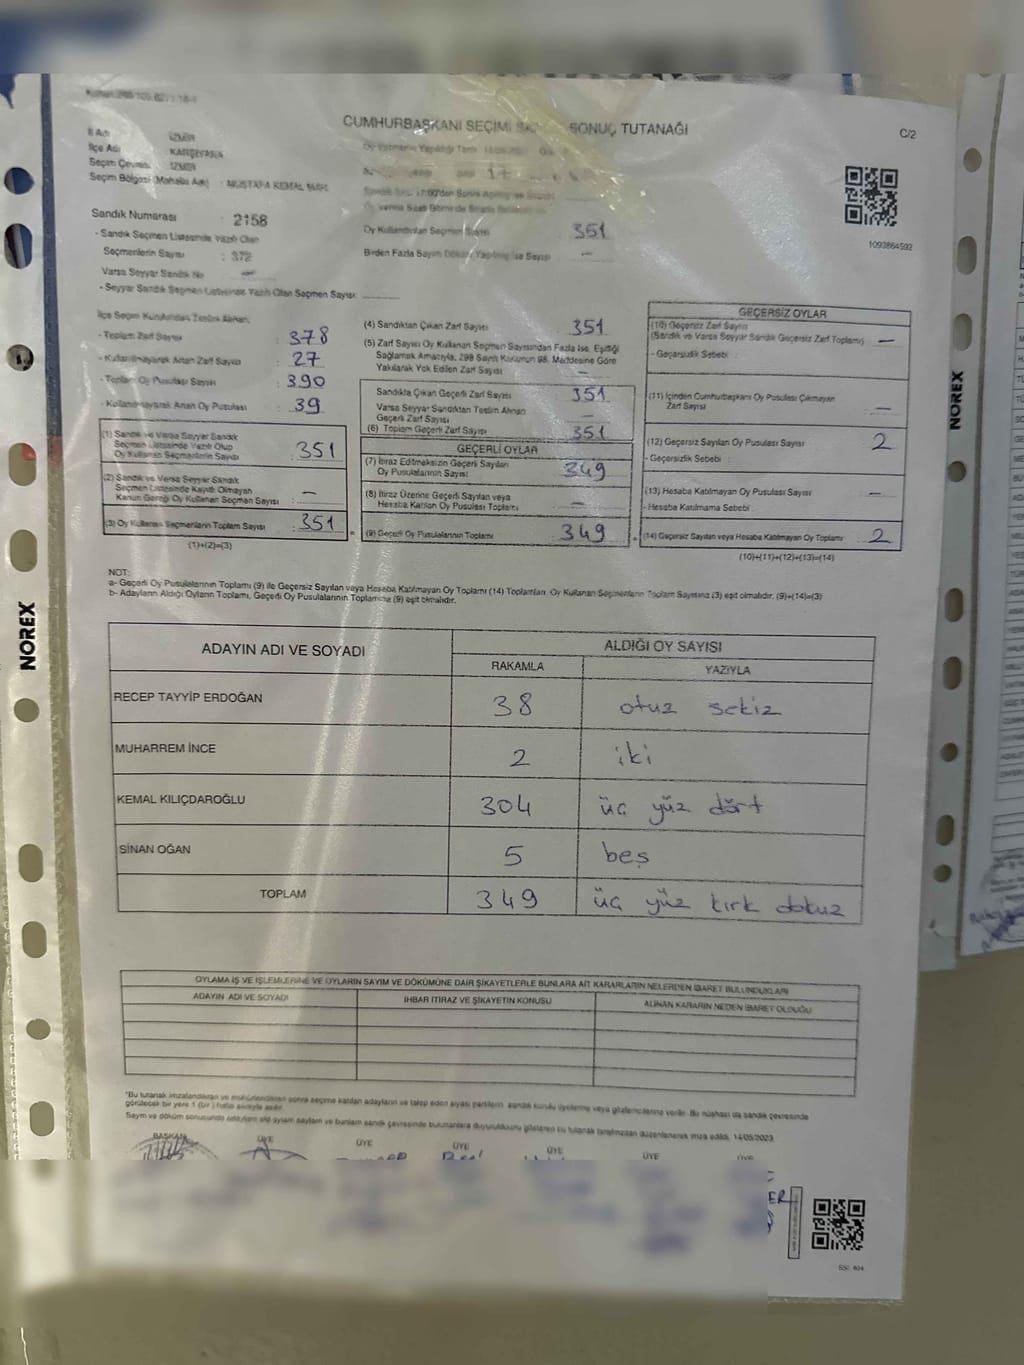 CUMHURBAŞKANI SEÇİMİ SONUÇ TUTANAĞI
C/2
İl Adı İZMİR
İlçe Adı KARŞIYAKA
Seçim Çevresi İZMİR
Seçim Bölgesi (Mahalle Adı) : MUSTAFA KEMAL MAH.
Sandık Numarası : 2158
- Sandık Seçmen Listesinde Yazılı Olan
Seçmenlerin Sayısı : 372
Varsa Seyyar Sandık No —
- Seyyar Sandık Seçmen Listesinde Yazılı Olan Seçmen Sayısı:
Oy Kullandırılan Seçmen Sayısı 351
Birden Fazla Sayım Döküm Yapılmış ise Sayısı —
1093864592
İlçe Seçim Kurulundan Teslim Alınan;
- Toplam Zarf Sayısı : 378
- Kullanılmayarak Artan Zarf Sayısı : 27
- Toplam Oy Pusulası Sayısı : 390
- Kullanılmayarak Artan Oy Pusulası : 39
(1) Sandık ve Varsa Seyyar Sandık
Seçmen Listesinde Yazılı Olup
Oy Kullanan Seçmenlerin Sayısı : 351
(2) Sandık ve Varsa Seyyar Sandık
Seçmen Listesinde Kayıtlı Olmayan
Kanun Gereği Oy Kullanan Seçmen Sayısı : —
(3) Oy Kullanan Seçmenlerin Toplam Sayısı : 351
(1)+(2)=(3)
(4) Sandıktan Çıkan Zarf Sayısı 351
(5) Zarf Sayısı Oy Kullanan Seçmen Sayısından Fazla ise, Eşitliği
Sağlamak Amacıyla, 298 Sayılı Kanunun 98. Maddesine Göre
Yakılarak Yok Edilen Zarf Sayısı —
Sandıkta Çıkan Geçerli Zarf Sayısı 351
Varsa Seyyar Sandıktan Teslim Alınan
Geçerli Zarf Sayısı —
(6) Toplam Geçerli Zarf Sayısı 351
GEÇERLİ OYLAR
(7) İtiraz Edilmeksizin Geçerli Sayılan
Oy Pusulalarının Sayısı 349
(8) İtiraz Üzerine Geçerli Sayılan veya
Hesaba Katılan Oy Pusulası Toplamı —
(9) Geçerli Oy Pusulalarının Toplamı 349
GEÇERSİZ OYLAR
(10) Geçersiz Zarf Sayısı
(Sandık ve Varsa Seyyar Sandık Geçersiz Zarf Toplamı) —
- Geçersizlik Sebebi :
(11) İçinden Cumhurbaşkanı Oy Pusulası Çıkmayan
Zarf Sayısı —
(12) Geçersiz Sayılan Oy Pusulası Sayısı 2
- Geçersizlik Sebebi :
(13) Hesaba Katılmayan Oy Pusulası Sayısı —
- Hesaba Katılmama Sebebi :
(14) Geçersiz Sayılan veya Hesaba Katılmayan Oy Toplamı 2
(10)+(11)+(12)+(13)=(14)
NOT:
a- Geçerli Oy Pusulalarının Toplamı (9) ile Geçersiz Sayılan veya Hesaba Katılmayan Oy Toplamı (14) Toplamları, Oy Kullanan Seçmenlerin Toplam Sayısına (3) eşit olmalıdır. (9)+(14)=(3)
b- Adayların Aldığı Oyların Toplamı, Geçerli Oy Pusulalarının Toplamına (9) eşit olmalıdır.
ADAYIN ADI VE SOYADI
ALDIĞI OY SAYISI
RAKAMLA YAZIYLA
RECEP TAYYİP ERDOĞAN 38 otuz sekiz
MUHARREM İNCE 2 iki
KEMAL KILIÇDAROĞLU 304 üç yüz dört
SİNAN OĞAN 5 beş
TOPLAM 349 üç yüz kırk dokuz
OYLAMA İŞ VE İŞLEMLERİNE VE OYLARIN SAYIM VE DÖKÜMÜNE DAİR ŞİKAYETLERLE BUNLARA AİT KARARLARIN NELERDEN İBARET BULUNDUKLARI
ADAYIN ADI VE SOYADI İHBAR İTİRAZ VE ŞİKAYETİN KONUSU ALINAN KARARIN NEDEN İBARET OLDUĞU
*Bu tutanak imzalandıktan ve mühürlendikten sonra seçime katılan adayların ve talep eden siyasi partilerin sandık kurulu üyelerine veya gözlemcilerine verilir. Bu nüshası da sandık çevresinde
BAŞKAN ÜYE ÜYE ÜYE ÜYE ÜYE ÜYE
NOREX
NOREX